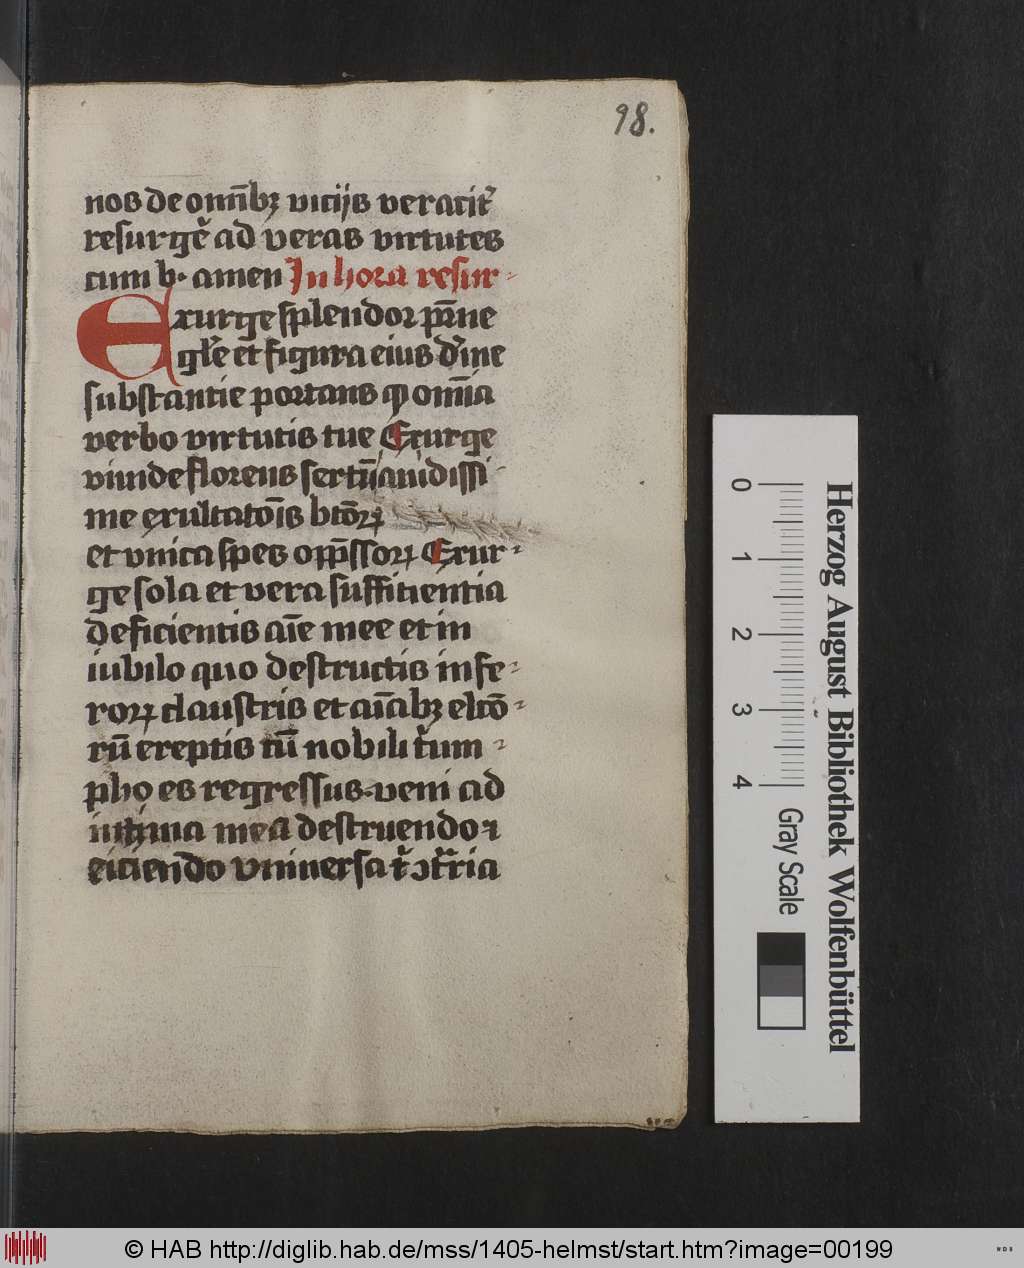 98.
nos de om̄ibꝫ vicijs veracit᷑
resurgē ad veras virtutes
cum b· amen In hora resur-
Exurge splendor p̄rne
gl̄e et figura eius d᷑ine
substantie portans qꝫ om̄ia
verbo virtutis tue Exurge
viuide florens sertū iauidissi-
me exultatōis btōꝝ
et vnica spes opp̄ssoꝝ Exur-
ge sola et vera sufficientia
deficientis aīe mee et in
iubilo quo destructis infe-
roꝝ claustris et aīabꝫ eltō-
rū ereptis tū nobili t᷑ium-
pho es regressus. veni ad
intima mea destruendo ꝛ
eiciendo vniuersa t᷑ ↄt᷑ria
Herzog August Bibliothek Wolfenbüttel
0 1 2 3 4
Gray Scale
© HAB http://diglib.hab.de/mss/1405-helmst/start.htm?image=00199